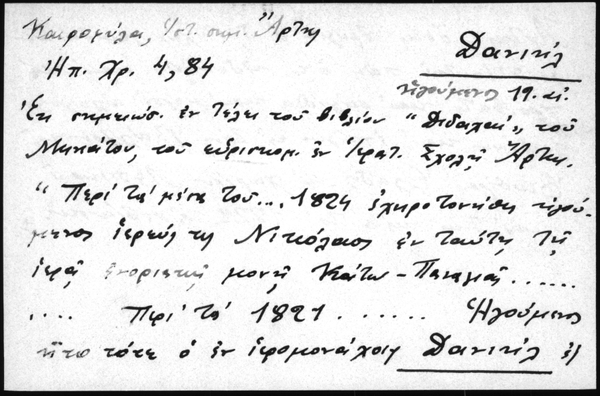 Καιροφύλα, Ἱστ. σημ. Ἄρτης
Ἠπ. Χρ. 4, 84
Δανιήλ
ἡγούμενος 19. αἰ.
Ἐκ σημειώσ. ἐν τέλει τοῦ βιβλίου "Διδαχαί", τοῦ
Μηνιάτου, τοῦ εὑρισκομ. ἐν Ἱερατ. Σχολῇ Ἄρτης.
"Περί τά μέσα τοῦ.... 1824 ἐχειροτονήθη ἡγού-
μενος ἱερεύς τις Νικόλαος ἐν ταύτῃ τῇ
ἱερᾷ ἐνοριακῇ μονῇ Κάτω-Παναγιᾶς ......
.... Περί τά 1821 ...... Ἡγούμενος
ἦτο τότε ὁ ἐν ἱερομονάχοις Δανιήλ